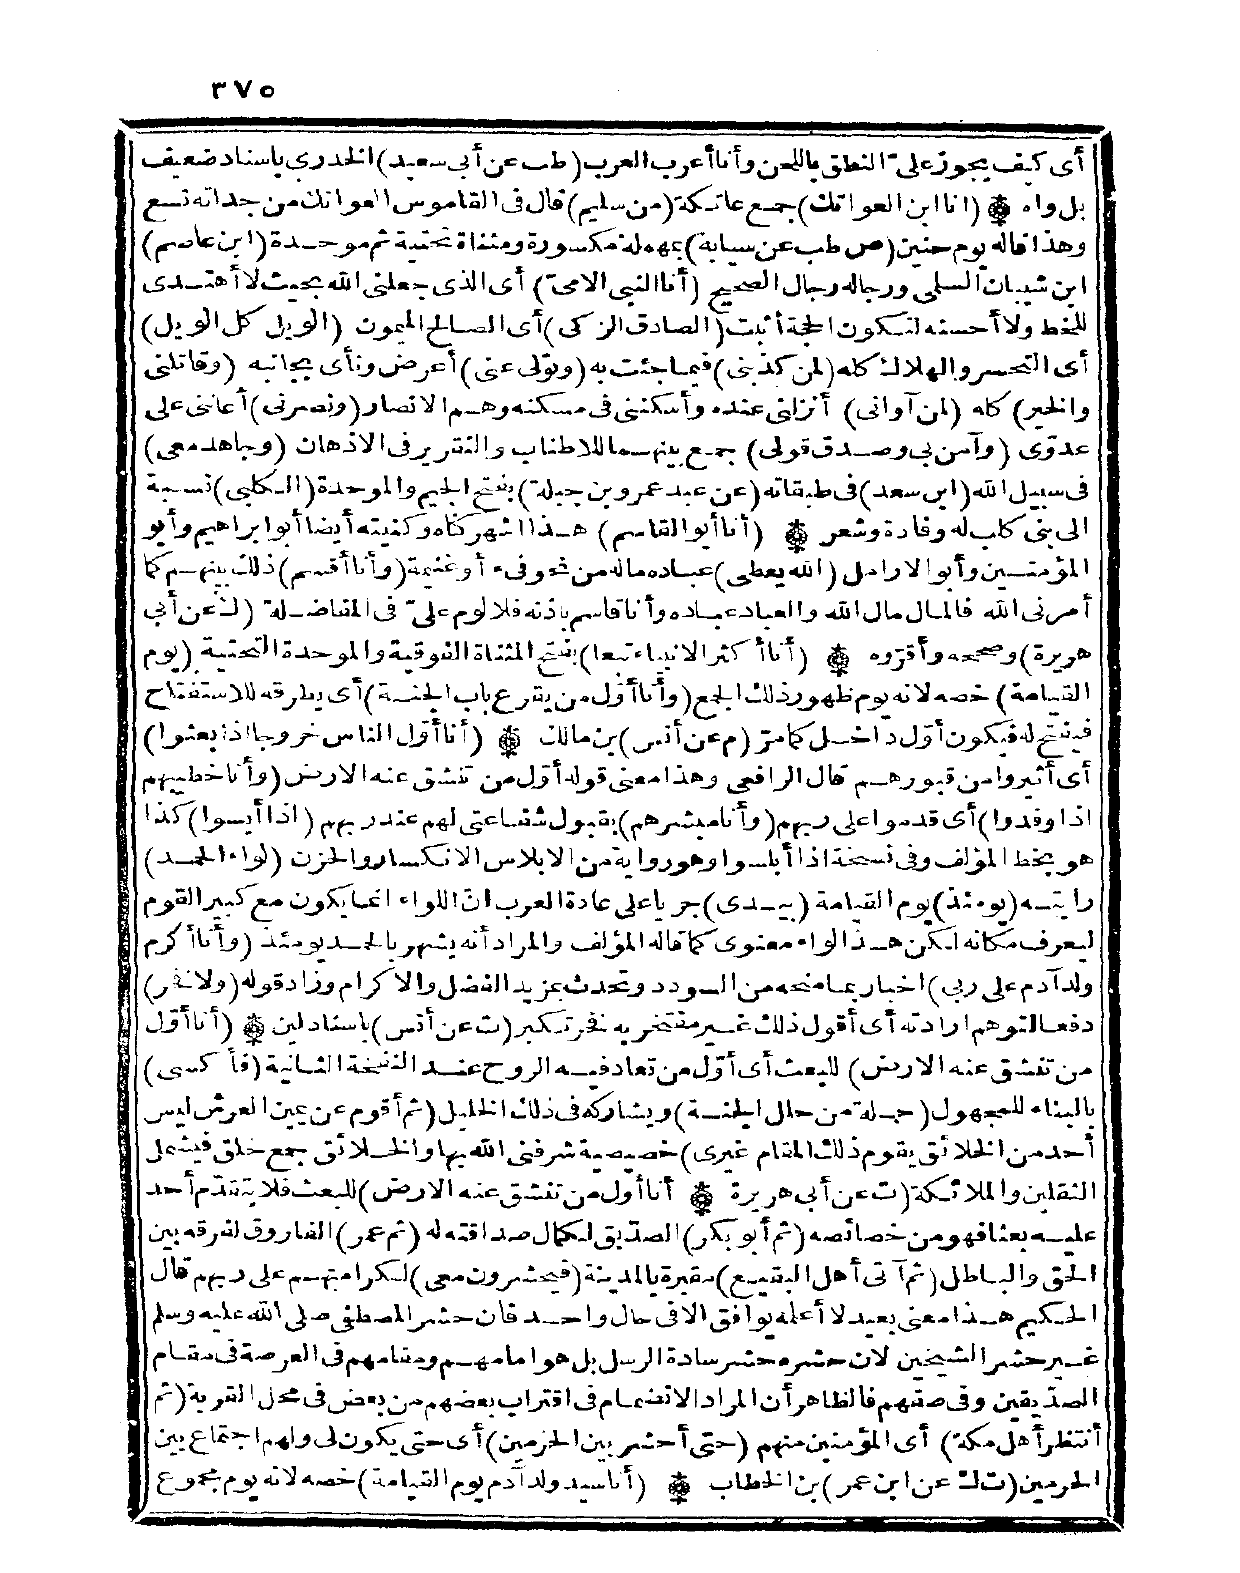 ٣٧٥
أى كيف يجوز على النطق باللحن وأنا أعرب العرب (طب عن أبى سعيد) الخدرى باسناد ضعيف
بل واه (انا ابن العواتك) جمع عاتكة (من سليم) قال فى القاموس العواتك من جداته تسع
وهذا قاله يوم حنين (ص طب عن سيابه) بمهملة مكسورة ومثناة تحتية ثم موحدة (ابن عاصم)
ابن شيبان السلمى ورجاله رجال الصحيح (أنا النبى الامىّ) أى الذى جعلنى الله بحيث لا أهتدى
للخط ولا أحسنه لتكون الحجة أثبت (الصادق الزكى) أى الصالح الميمون (الويل كل الويل)
أى التحسر والهلاك كله (لمن كذبنى) فيما جئت به (وتولى عنى) أعرض ونأى بجانبه (وقاتلنى
والخير) كله (لمن آوانى) أنزلنى عنده وأسكننى فى مسكنه وهم الانصار (ونصرنى) أعاننى على
عدوّى (وآمن بى وصدق قولى) جمع بينهما للاطناب والتقرير فى الاذهان (وجاهد معى)
فى سبيل الله (ابن سعد) فى طبقاته (عن عبد عمرو بن جبلة) بفتح الجيم والموحدة (الكلبى) نسبة
الى بنى كلب له وفادة وشعر (أنا أبو القاسم) هذا أشهر كناه وكنيته أيضا أبو ابراهيم وأبو
المؤمنين وأبو الارامل (الله يعطى) عباده ماله من نحو فىء أو غنيمة (وأنا أقسم) ذلك بينهم كما
أمرنى الله فالمال مال الله والعباد عباده وأنا قاسم باذنه فلا لوم علىّ فى المفاضلة (ك عن أبى
هريرة) وصححه وأقرّوه (أنا أكثر الانبياء تبعا) بفتح المثناة الفوقية والموحدة التحتية (يوم
القيامة) خصه لانه يوم ظهور ذلك الجمع (وأنا أوّل من يقرع باب الجنة) أى يطرقه للاستفتاح
فيفتح له فيكون أوّل داخل كما مرّ (م عن أنس) بن مالك (أنا أوّل الناس خروجا اذا بعثوا)
أى أثيروا من قبورهم قال الرافعى وهذا معنى قوله أوّل من تنشق عنه الارض (وأنا خطيبهم
اذا وفدوا) أى قدموا على ربهم (وأنا مبشرهم) بقبول شفاعتى لهم عند ربهم (اذا أيسوا) كذا
هو بخط المؤلف وفى نسخة اذا أبلسوا وهو رواية من الابلاس الانكسار والحزن (لواء الحمد)
رايته (يومئذ) يوم القيامة (بيدى) جريا على عادة العرب انّ اللواء انما يكون مع كبير القوم
ليعرف مكانه لكن هذا لواء معنوى كما قاله المؤلف والمراد أنه يشهر بالحمد يومئذ (وأنا أكرم
ولد آدم على ربى) اخبار بما منحه من السودد وتحدث بمزيد الفضل والاكرام وزاد قوله (ولا نفر)
دفعا لتوهم ارادته أى أقول ذلك غير مفتخر به فخر تكبر (ت عن أنس) باسناد لين (أنا أوّل
من تنشق عنه الارض) للبعث أى أوّل من تعاد فيه الروح عند النفخة الثانية (فأكسى)
بالبناء للمجهول (حلة من حلل الجنة) ويشاركه فى ذلك الخليل (ثم أقوم عن يمين العرش ليس
أحد من الخلائق يقوم ذلك المقام غيرى) خصيصية شرفنى الله بها والخلائق جمع خلق فيشمل
الثقلين والملائكة (ت عن أبى هريرة أنا أول من تنشق عنه الارض) للبعث فلا يتقدّم أحد
عليه بعثا فهو من خصائصه (ثم أبو بكر) الصدّيق لكمال صداقته له (ثم عمر) الفاروق لفرقه بين
الحق والباطل (ثم آتى أهل البقيع) مقبرة بالمدينة (فيحشرون معى) لكرامتهم على ربهم قال
الحكيم هذا معنى بعيد لا أعلمه يوافق الا فى حال واحد فان حشر المصطفى صلى الله عليه وسلم
غير حشر الشيخين لان حشره حشر سادة الرسل بل هو امامهم ومقامهم فى العرصة فى مقام
الصدّيقين وفى صفهم فالظاهر أن المراد الانضمام فى اقتراب بعضهم من بعض فى محل القربة (ثم
أنتظر أهل مكة) أى المؤمنين منهم (حتى أحشر بين الحرمين) أى حتى يكون لى ولهم اجتماع بين
الحرمين (ت ك عن ابن عمر) بن الخطاب (أنا سيد ولد آدم يوم القيامة) خصه لانه يوم مجموع